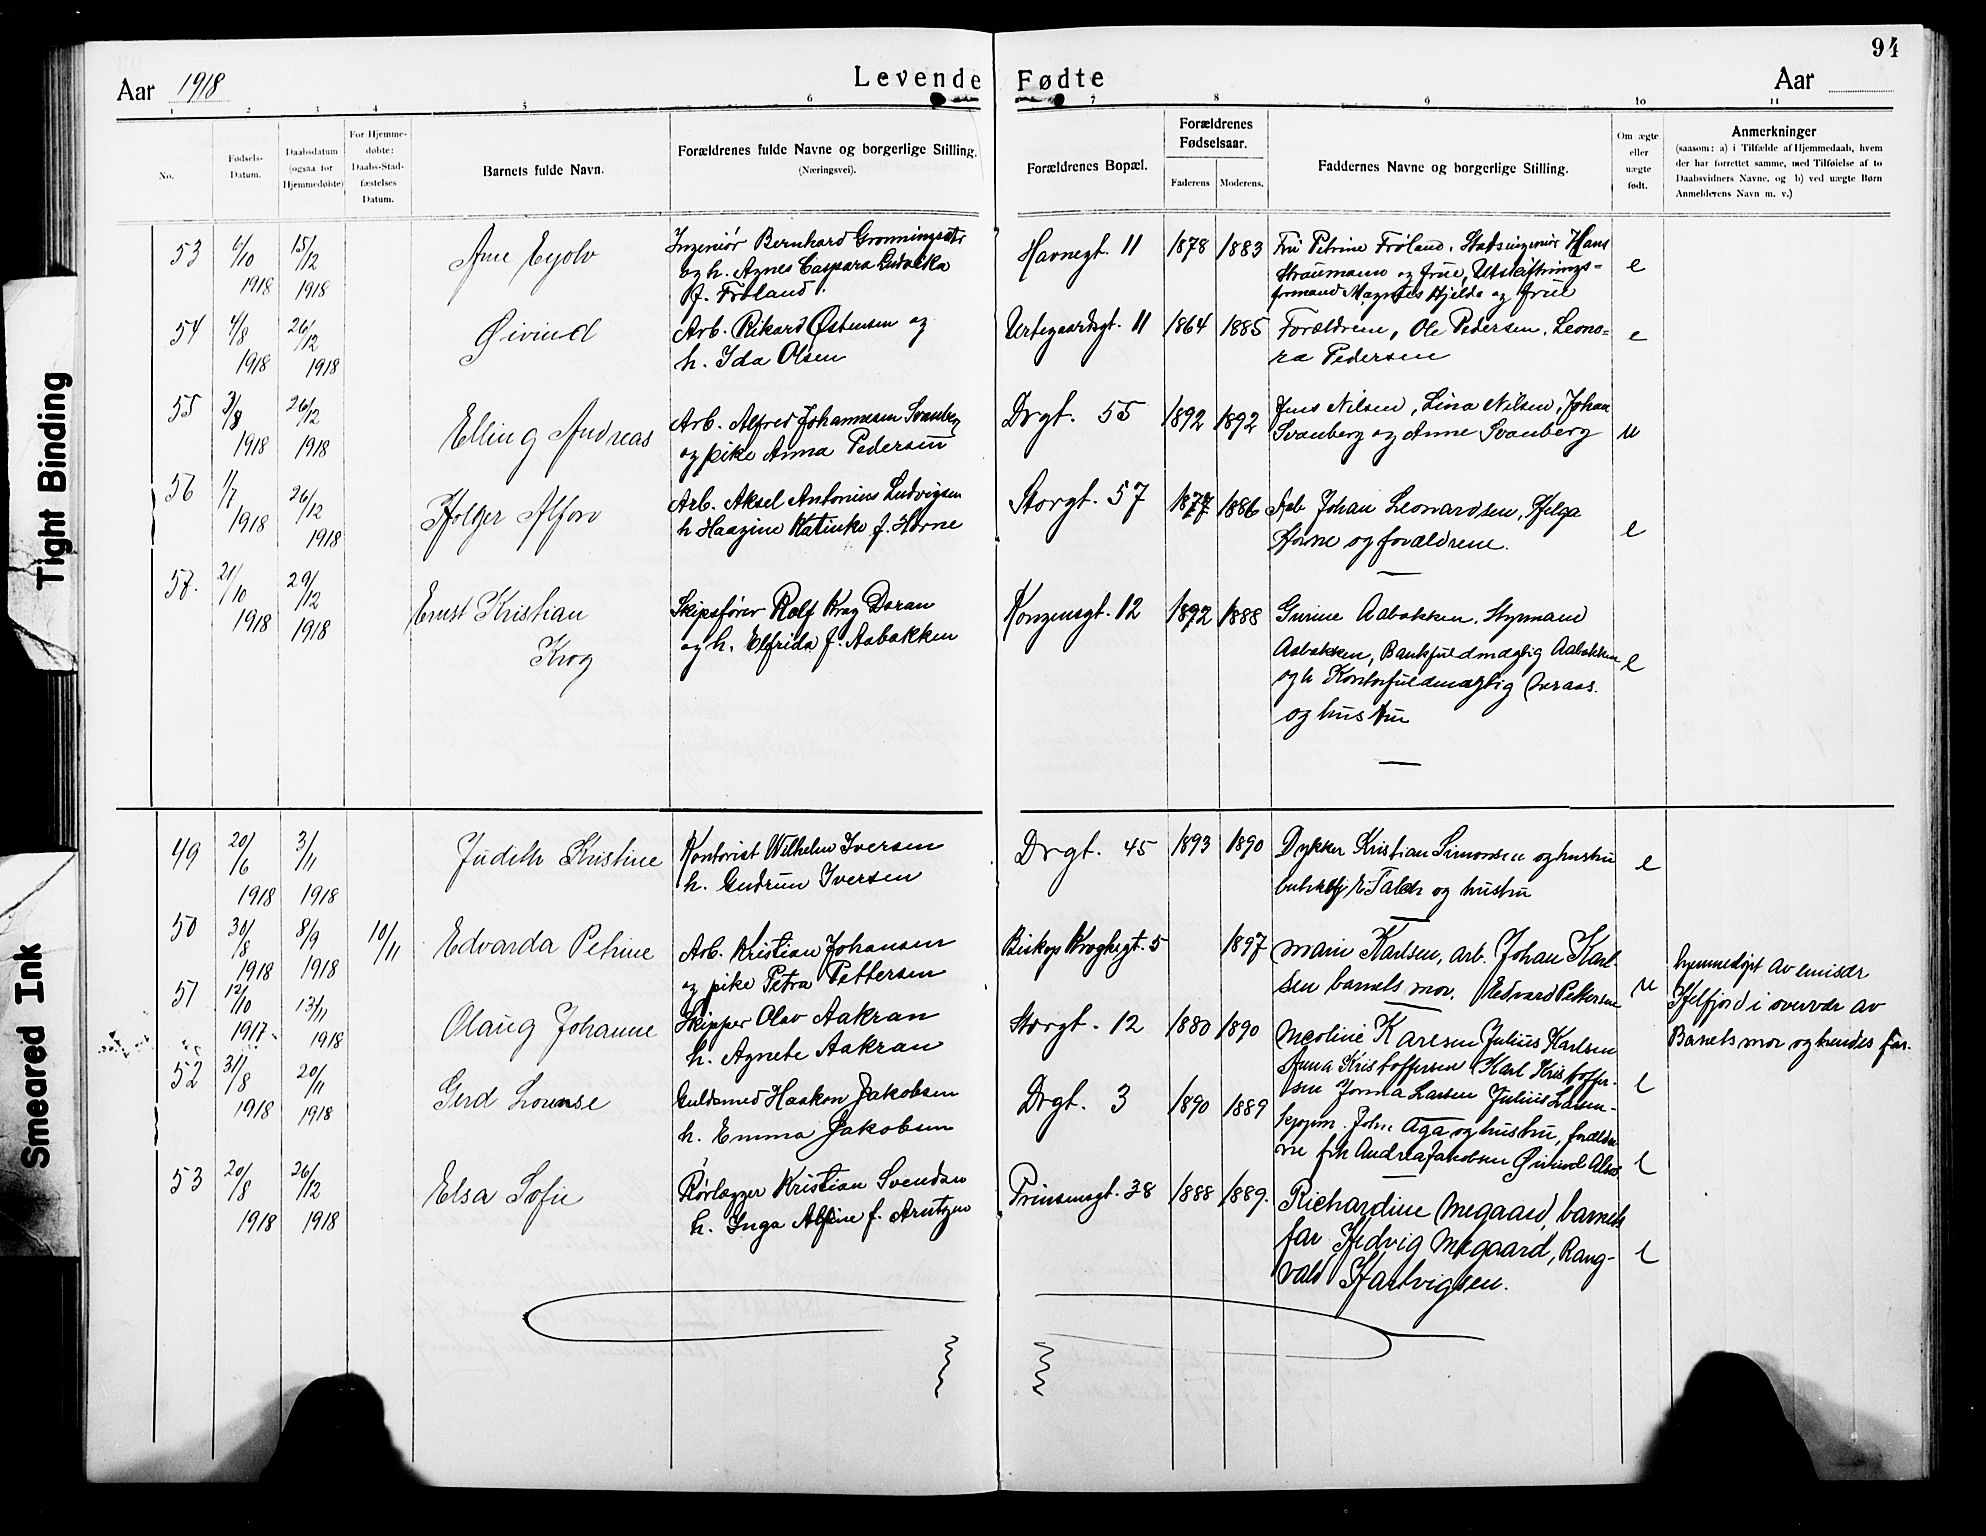 94
Aar 1918
Levende Fødte
Aar
1 2 3 4 5 6 7 8 9 10 11
No.
Fødsels-
Datum.
Daabsdatum
(ogsaa for
Hjemmedøbte)
For Hjemme-
døbte:
Daabs-Stad-
fæstelses
Datum.
Barnets fulde Navn.
Forældrenes fulde Navne og borgerlige Stilling.
(Næringsvei).
Forældrenes Bopæl.
Forældrenes
Fødselsaar.
Faderens Moderens.
Faddernes Navne og borgerlige Stilling.
Om ægte
eller
uægte
født.
Anmerkninger
(saasom: a) i Tilfælde af Hjemmedaab, hvem
der har forrettet samme, med Tilføielse af to
Daabsvidners Navne. og b) ved uægte Børn
Anmelderens Navn m. v.)
53
6/10
1918
15/12
1918
Arne Eyolv
Ingeniør Bernhard Grønningsæter
og h. Agnes Caspara Ludvika
f. Frøland.
Havnegt. 11
1878 1883
Fru Petrine Frøland. Stadsingeniør Hans
Straumann og frue, Utskiftnings-
formand Magnus Hjelde og frue
e
54
4/8
1918
26/12
1918
Øivind
Arb. Rikard Østensen og
h. Ida Olsen
Urtegaardsgt. 11
1864 1885
Forældrene, Ole Pedersen, Leono-
ra Pedersen
e
55
3/8
1918
26/12
1918
Elling Andreas
Arb. Alfred Johannesen Svanberg
og pike Anna Pedersen
Drgt. 55
1892 1892
Jens Nilsen, Lina Nilsen, Johan
Svanberg og Anne Svanberg
u
56
1/7
1918
26/12
1918
Holger Alfon
Arb. Aksel Antonius Ludvigsen
h Haagine Katinke f. Horne
Storgt. 57
1877 1886
Arb Johan Leonardsen, Helga
Horne og forældrene.
e
57.
21/10
1918
29/12
1918
Ernst Kristian
Krog
Skipsfører Rolf Krog Doran
og h. Elfrida f. Aabakken
Kongensgt. 12
1892 1888
Gurine Aabakken, Styrmand
Aabakken, Bankfuldmægtig Aabakken
og h Kontorfuldmægtig
og hustru
e
49
20/6
1918
3/11
1918
Judith Kristine
Kontorist Wilhelm Iversen
h. Gudrun Iversen
Drgt. 45
1893 1890
Dykker Kristian Simonsen og hustru
Falch og hustru
e
50
30/8
1918
8/9
1918
10/11
Edvarda Petrine
Arb. Kristian Johansen
og pike Petra Pettersen
Biskop Kroghsgt. 5
1897
Marie Karlsen, arb. Johan Karl-
sen barnets mor. Edvard Pettersen
u
hjemmedøpt av emisær
Helfjord i overvær av
Barnets mor og hendes far.
51
12/10
1917
13/11
1918
Olaug Johanne
Skipper Olav Aakran
h. Agnete Aakran
Storgt. 12
1880 1890
Meoline Karlsen Julius Karlsen
Anna Kristoffersen Karl Kristoffer-
sen Jorma Larsen Julius Larsen
e
52
31/8
1918
20/11
1918
Gerd Lovise
Guldsmed Haakon Jakobsen
h. Emma Jakobsen
Drgt. 3
1890 1889
kjøpm. John Aga og hustru, forældre-
ne frk Andrea Jakobsen Øivind
e
53
20/8
1918
26/12
1918
Elsa Sofie
Rørlægger Kristian Svendsen
h. Inga Alfine f. Arntzen
Prinsensgt. 38
1888 1889.
Richardine Megaard, barnets
far, Hedvig Megaard, Rang-
vald Hartvigsen.
e
Tight Binding
Smeared Ink